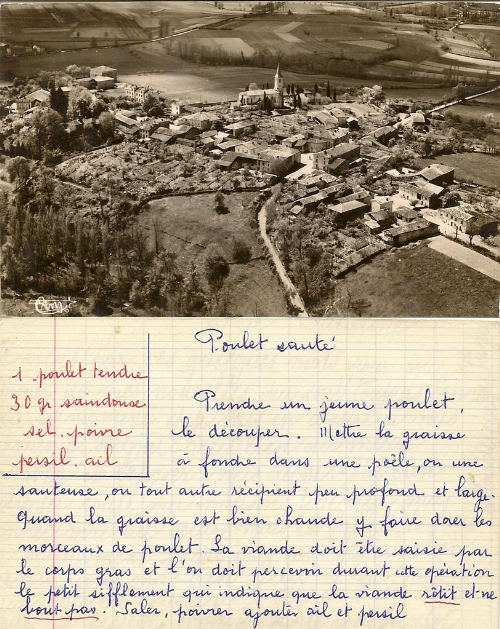 Poulet sauté
1 poulet tendre
30 gr saindouse
sel, poivre
persil, ail
Prendre un jeune poulet,
le découper. Mettre la graisse
à fondre dans une poêle, ou une
sauteuse, ou tout autre récipient peu profond et large.
Quand la graisse est bien chaude y faire dorer les
morceaux de poulet. La viande doit être saisie par
le corps gras et l'on doit percevoir durant cette opération
le petit sifflement qui indique que la viande rôtit et ne
bout pas. Saler, poivrer ajouter ail et persil